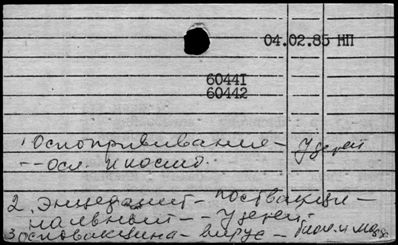 04.02.85 НП
60441
60442
1 Оспопрививание - у детей
-- осл. и космо.
2. Энцефалит - поствакци-
нальный - - у детей -
3 Осповакцина - вирус -